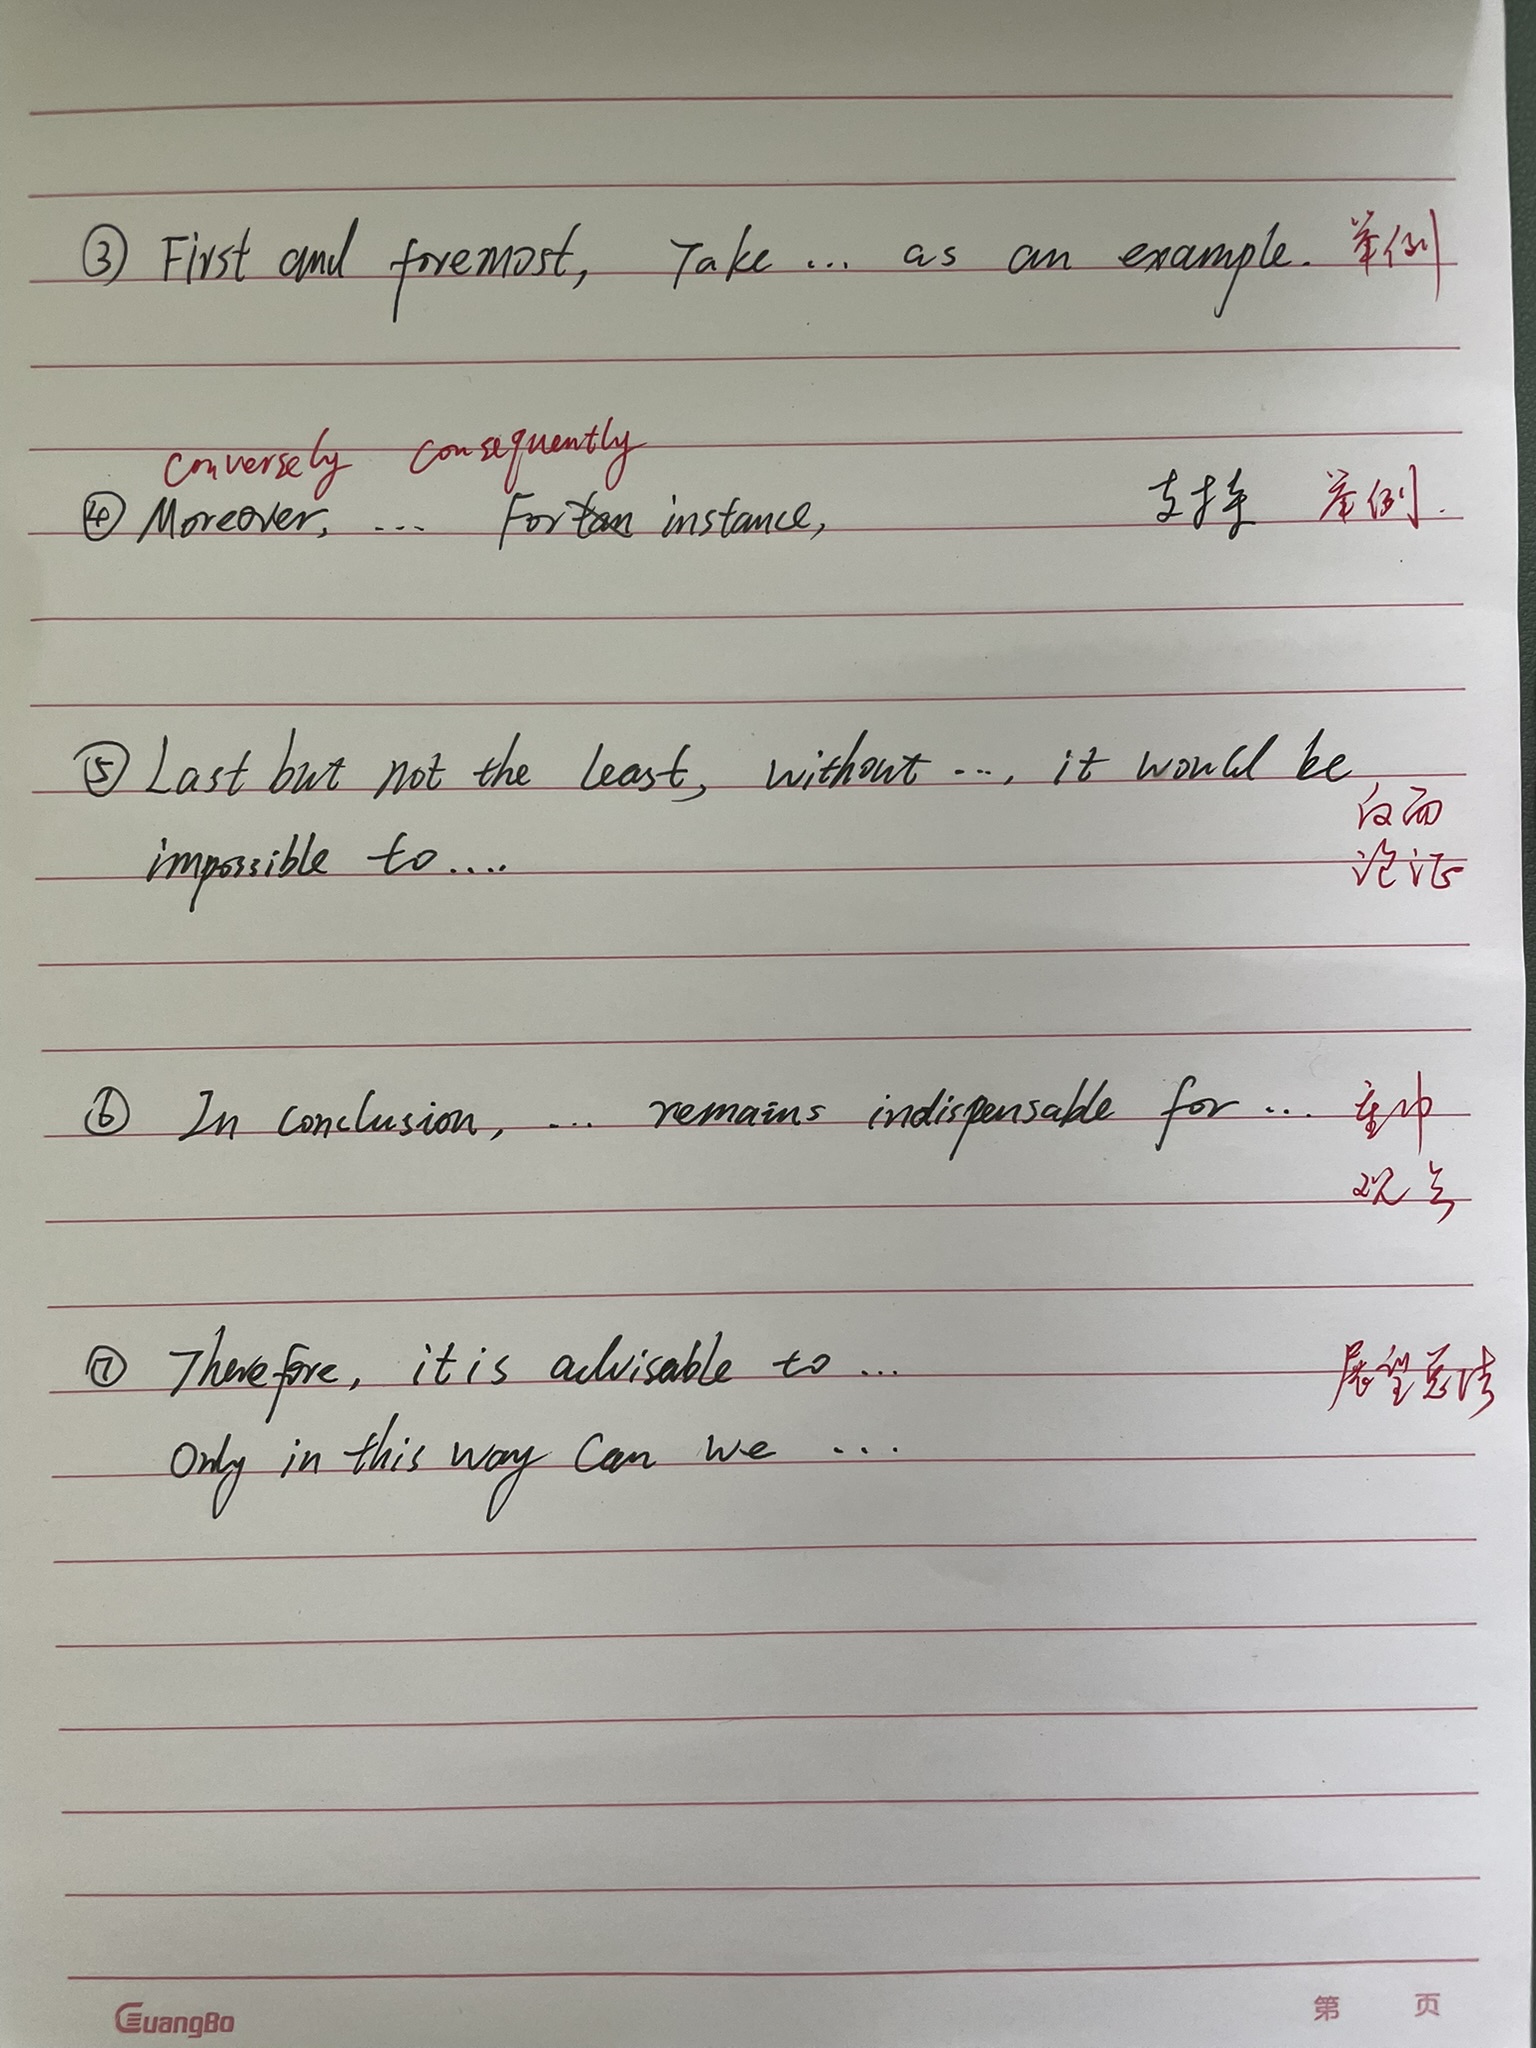 ③ First and foremost, Take ... as an example. 举例
conversely consequently
④ Moreover, ... For instance, 支持 举例.
⑤ Last but not the least, without ..., it would be
反面
impossible to....
论证
⑥ In conclusion, ... remains indispensable for ... 重申
观点
⑦ Therefore, it is advisable to ... 展望总结
Only in this way can we ...
GuangBo 第 页